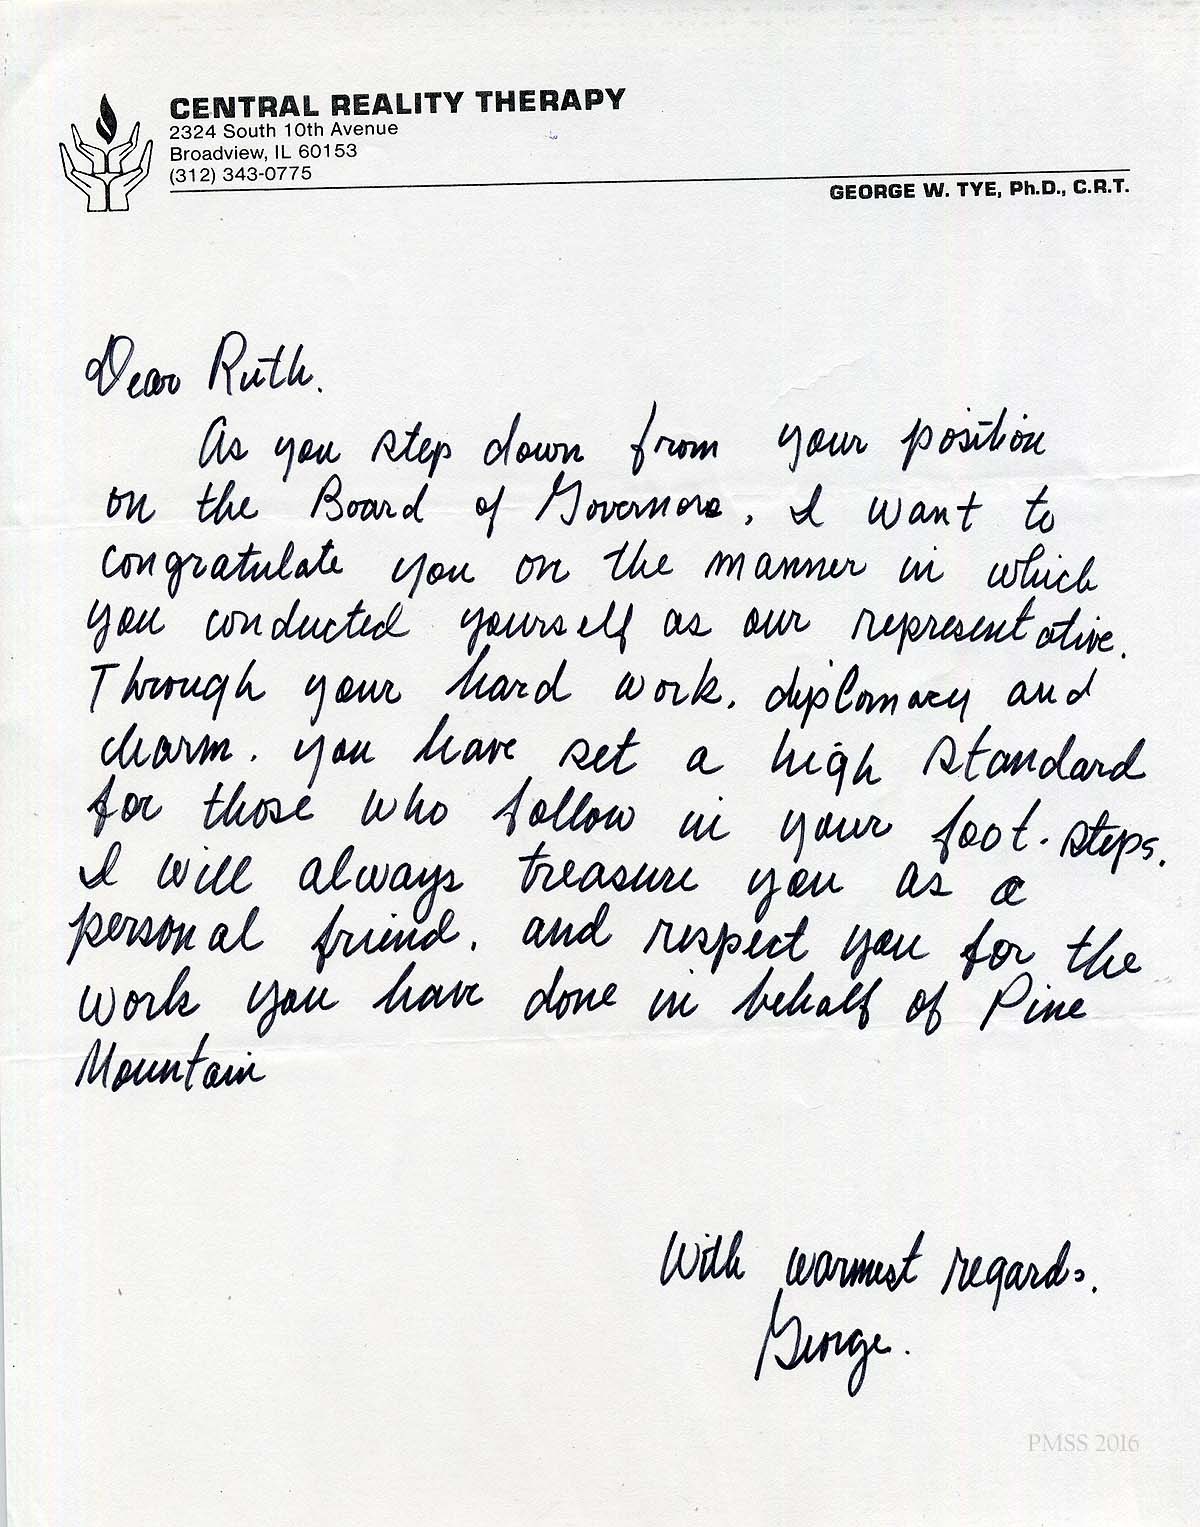 CENTRAL REALITY THERAPY
2324 South 10th Avenue
Broadview, IL 60153
(312) 343-0775
GEORGE W. TYE, Ph.D., C.R.T.
Dear Ruth.
As you step down from your position
on the Board of Governors, I want to
congratulate you on the manner in which
you conducted yourself as our representative.
Through your hard work, diplomacy and
charm, you have set a high standard
for those who follow in your foot-steps.
I will always treasure you as a
personal friend, and respect you for the
work you have done in behalf of Pine
Mountain
With warmest regards.
George.
PMSS 2016